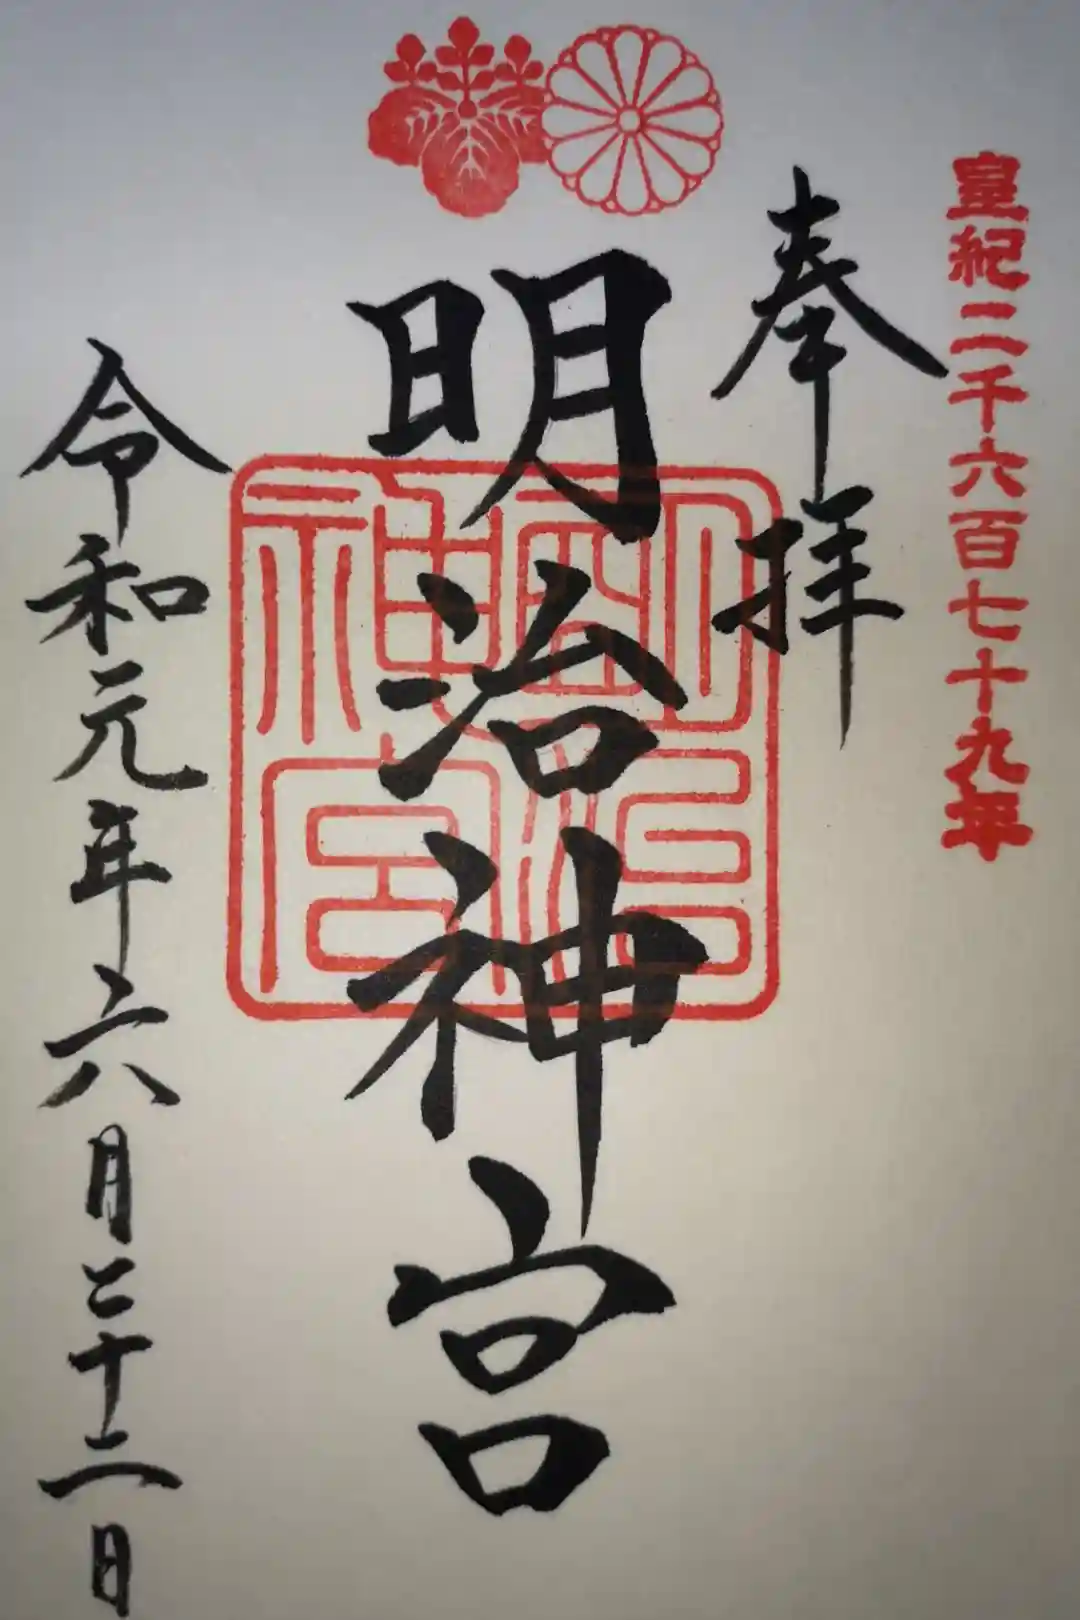 皇紀二千六百七十九年
奉拝
明治神宮
明治神宮
令和元年六月二十二日